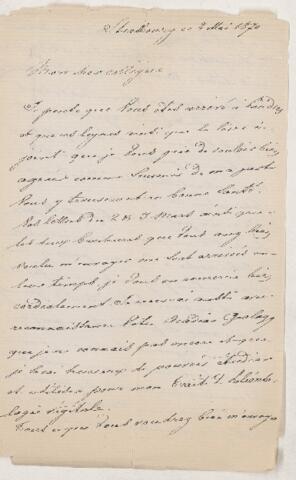 Strasbourg ce 2 Mai 1870
Mon cher collègue
Je pense que Vous êtes arrivé à Londres
et que ces lignes ainsi que la
joint que je Vous prie de vouloir bien
agréer comme Souvenir de ma part
Vous y trouveront en bonne Santé.
Vos lettres du 2 & Mars ainsi que
les deux que Vous avez bien
voulu m'envoyer me sont arrivés en
leur temps, je Vous en remercie bien
cordialement. Je reçus ici aussi avec
reconnaissance Votre Acadian Geology
que je ne connais pas encore et que
je serai heureux de pouvoir étudier
et utiliser pour mon Traité d. Paléonto-
logie végétale.
Tout ce que Vous voudrez bien m'envoyer